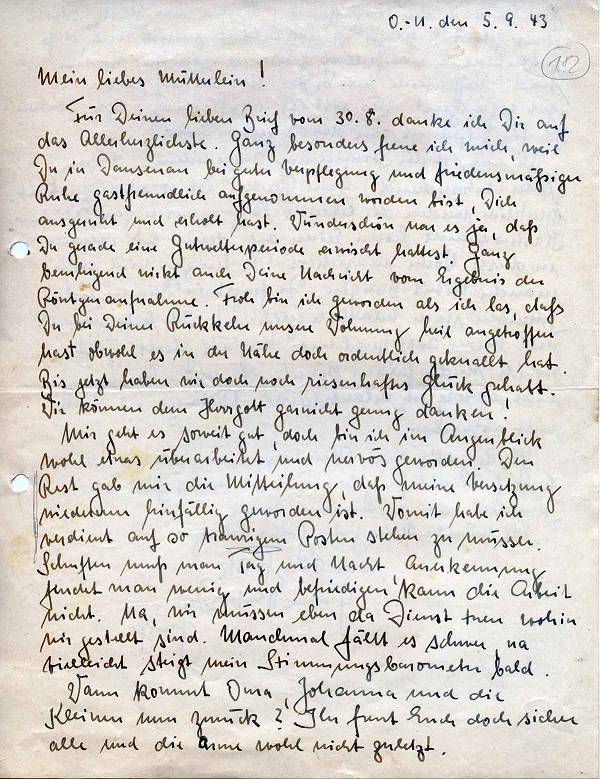 O.-U. den 5.9.43
182
Mein liebes Mütterlein!
Für Deinen lieben Brief vom 30.8. danke ich Dir auf
das Allerherzlichste. Ganz besonders freue ich mich, weil
Du in Dausenau bei guter Verpflegung und friedensmäßiger
Ruhe gastfreundlich aufgenommen worden bist, Dich
ausgeruht und erholt hast. Wunderschön war es ja, daß
Du gerade eine Gutwetterperiode erwischt hattest. Ganz
beruhigend wirkt auch Deine Nachricht vom Ergebnis der
Röntgenaufnahme. Froh bin ich geworden als ich las, dass
Du bei Deiner Rückkehr unsere Wohnung heil angetroffen
hast obwohl es in der Nähe doch ordentlich geknallt hat.
Bis jetzt haben wir doch noch riesenhaftes Glück gehabt.
Wir können dem Herrgott garnicht genug danken!
Mir geht es soweit gut, doch bin ich im Augenblick
wohl etwas überarbeitet und nervös geworden. Den
Rest gab mir die Mitteilung, daß meine Versetzung
wiederum hinfällig geworden ist. Womit habe ich
verdient auf so traurigem Posten stehen zu müssen.
Schuften muß man Tag und Nacht, Anerkennung
findet man wenig und befriedigen kann die Arbeit
nicht. Na, wir müssen eben da Dienst tuen wohin
wir gestellt sind. Manchmal fällt es schwer, na
vielleicht steigt mein Stimmungsbarometer bald.
Wann kommt Oma, Johanna und die
Kleinen nun zurück? Ihr freut Euch doch sicher
alle und die Arme wohl nicht zuletzt.